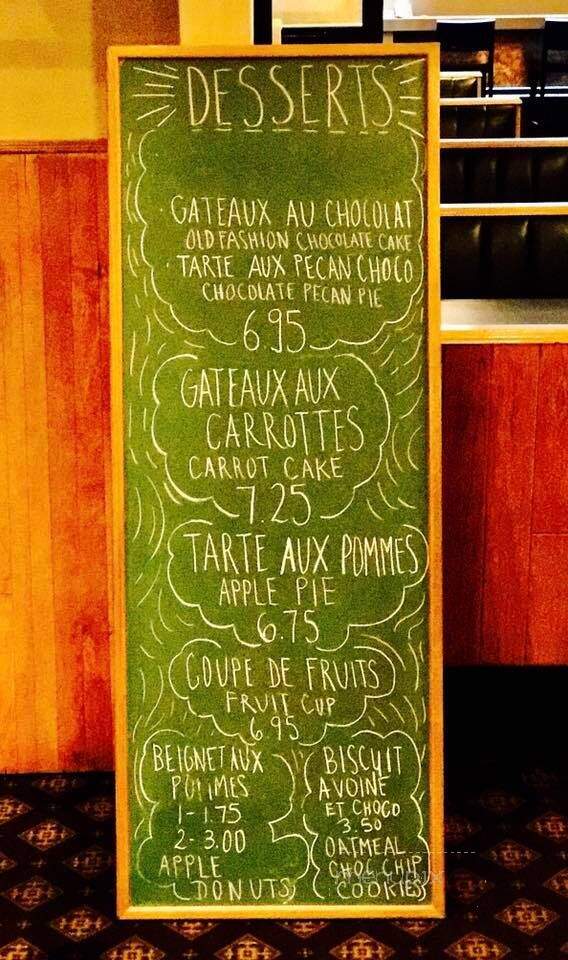 DESSERTS
· GATEAUX AU CHOCOLAT
OLD FASHION CHOCOLATE CAKE
· TARTE AUX PECAN CHOCO
CHOCOLATE PECAN PIE
6.95
GATEAUX AUX
CARROTTES
CARROT CAKE
7.25
TARTE AUX POMMES
APPLE PIE
6.75
COUPE DE FRUITS
FRUIT CUP
6.95
BEIGNET AUX
POMMES
1- 1.75
2- 3.00
APPLE
DONUTS
BISCUIT
AVOINE
ET CHOCO
3.50
OATMEAL
CHOC CHIP
COOKIES